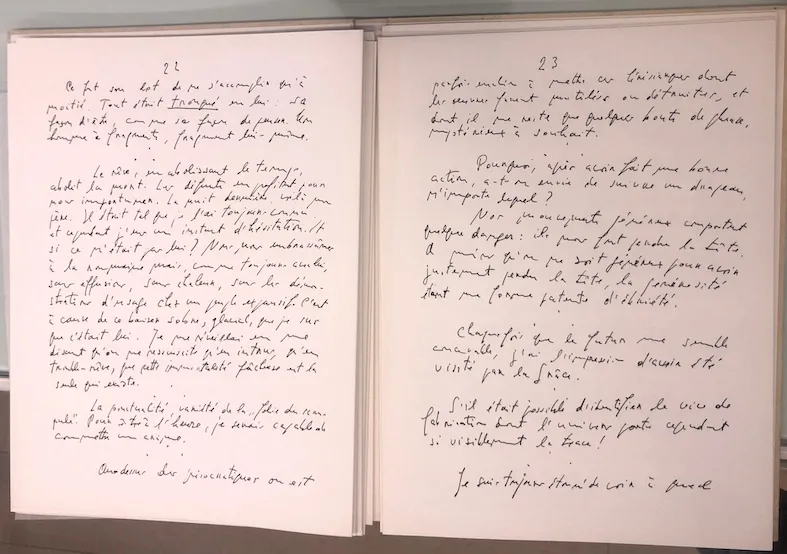 22
Ce fut son lot de ne s'accomplir qu'à
moitié. Tout était tronqué en lui : sa
façon d'être, comme sa façon de penser. Un
homme à fragments, fragment lui-même.
Le rêve, en abolissant le temps,
abolit la mort. Les défunts en profitent pour
nous importuner. La nuit dernière, voilà mon
père. Il était tel que je l'ai toujours connu
et cependant j'eus un instant d'hésitation. Et
si ce n'était pas lui ? Nous nous embrassâmes
à la roumaine mais, comme toujours avec lui,
sans effusion, sans chaleur, sans les démons-
trations d'usage chez un peuple expansif. C'est
à cause de ce baiser sobre, glacial, que je sus
que c'était lui. Je me réveillai en me
disant qu'on ne ressuscite qu'en intrus, qu'en
trouble-rêve, que cette immortalité fâcheuse est la
seule qui existe.
La ponctualité, variété de la « folie du scru-
pule ». Pour être à l'heure, je serais capable de
commettre un crime.
Au-dessus des présocratiques on est
23
parfois enclin à mettre ces hérésiarques dont
les œuvres furent mutilées ou détruites, et
dont il ne reste que quelques bouts de phrase,
mystérieux à souhait.
Pourquoi, après avoir fait une bonne
action, a-t-on envie de suivre un drapeau,
n'importe lequel ?
Nos mouvements généreux comportent
quelque danger : ils nous font perdre la tête.
A moins qu'on ne soit généreux pour avoir
justement perdu la tête, la générosité
étant une forme patente d'ébriété.
Chaque fois que le futur me semble
concevable, j'ai l'impression d'avoir été
visité par la Grâce.
S'il était possible d'identifier le vice de
fabrication dont l'univers porte cependant
si visiblement la trace !
Je suis toujours étonné de voir à quel